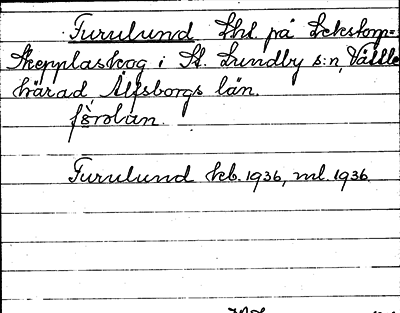 Furulund lht. på Lekstorp-
Skepplaskog i St. Lundby s:n, Vättle
härad Älfsborgs län.
fŏrolun.
Furulund kb. 1936, ml. 1936